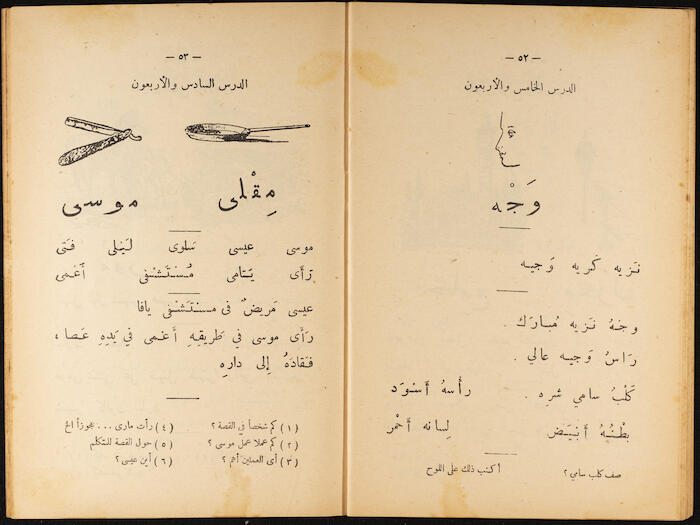 — ٥٢ —
الدرس الخامس والأربعون
وَجْه
نَزيه كَريه وَجيه
وجهُ نَزيه مُبارَك .
رَاسُ وَجيه عالي .
كَلْبُ سامي شَرِه . رأْسهُ أَسْوَد
بطْنُهُ أَبْيَض لِسانه أَحْمَر
صف كلب سامي ؟ أكتب ذلك على اللوح
— ٥٣ —
الدرس السادس والأربعون
مِقْلى موسى
موسى عيسى سَلوى لَيْلى فَتى
تَرْأى يَتامى مُسْتَشْفى أَعْمى
عيسى مَريضٌ فى مسْتَشْفى يافا
رَأى موسى في طَريقِهِ أَعْمى في يَدِهِ عَصا،
فَقادَهُ إِلى دارِهِ
(١) كم شخصاً فى القصة ؟ (٤) رأت مارى . . . عجوزاً الخ
(٢) كم عملا عمل موسى ؟ (٥) حول القصة للمتكلم
(٣) أى العملين أهم ؟ (٦) أين عيسى ؟